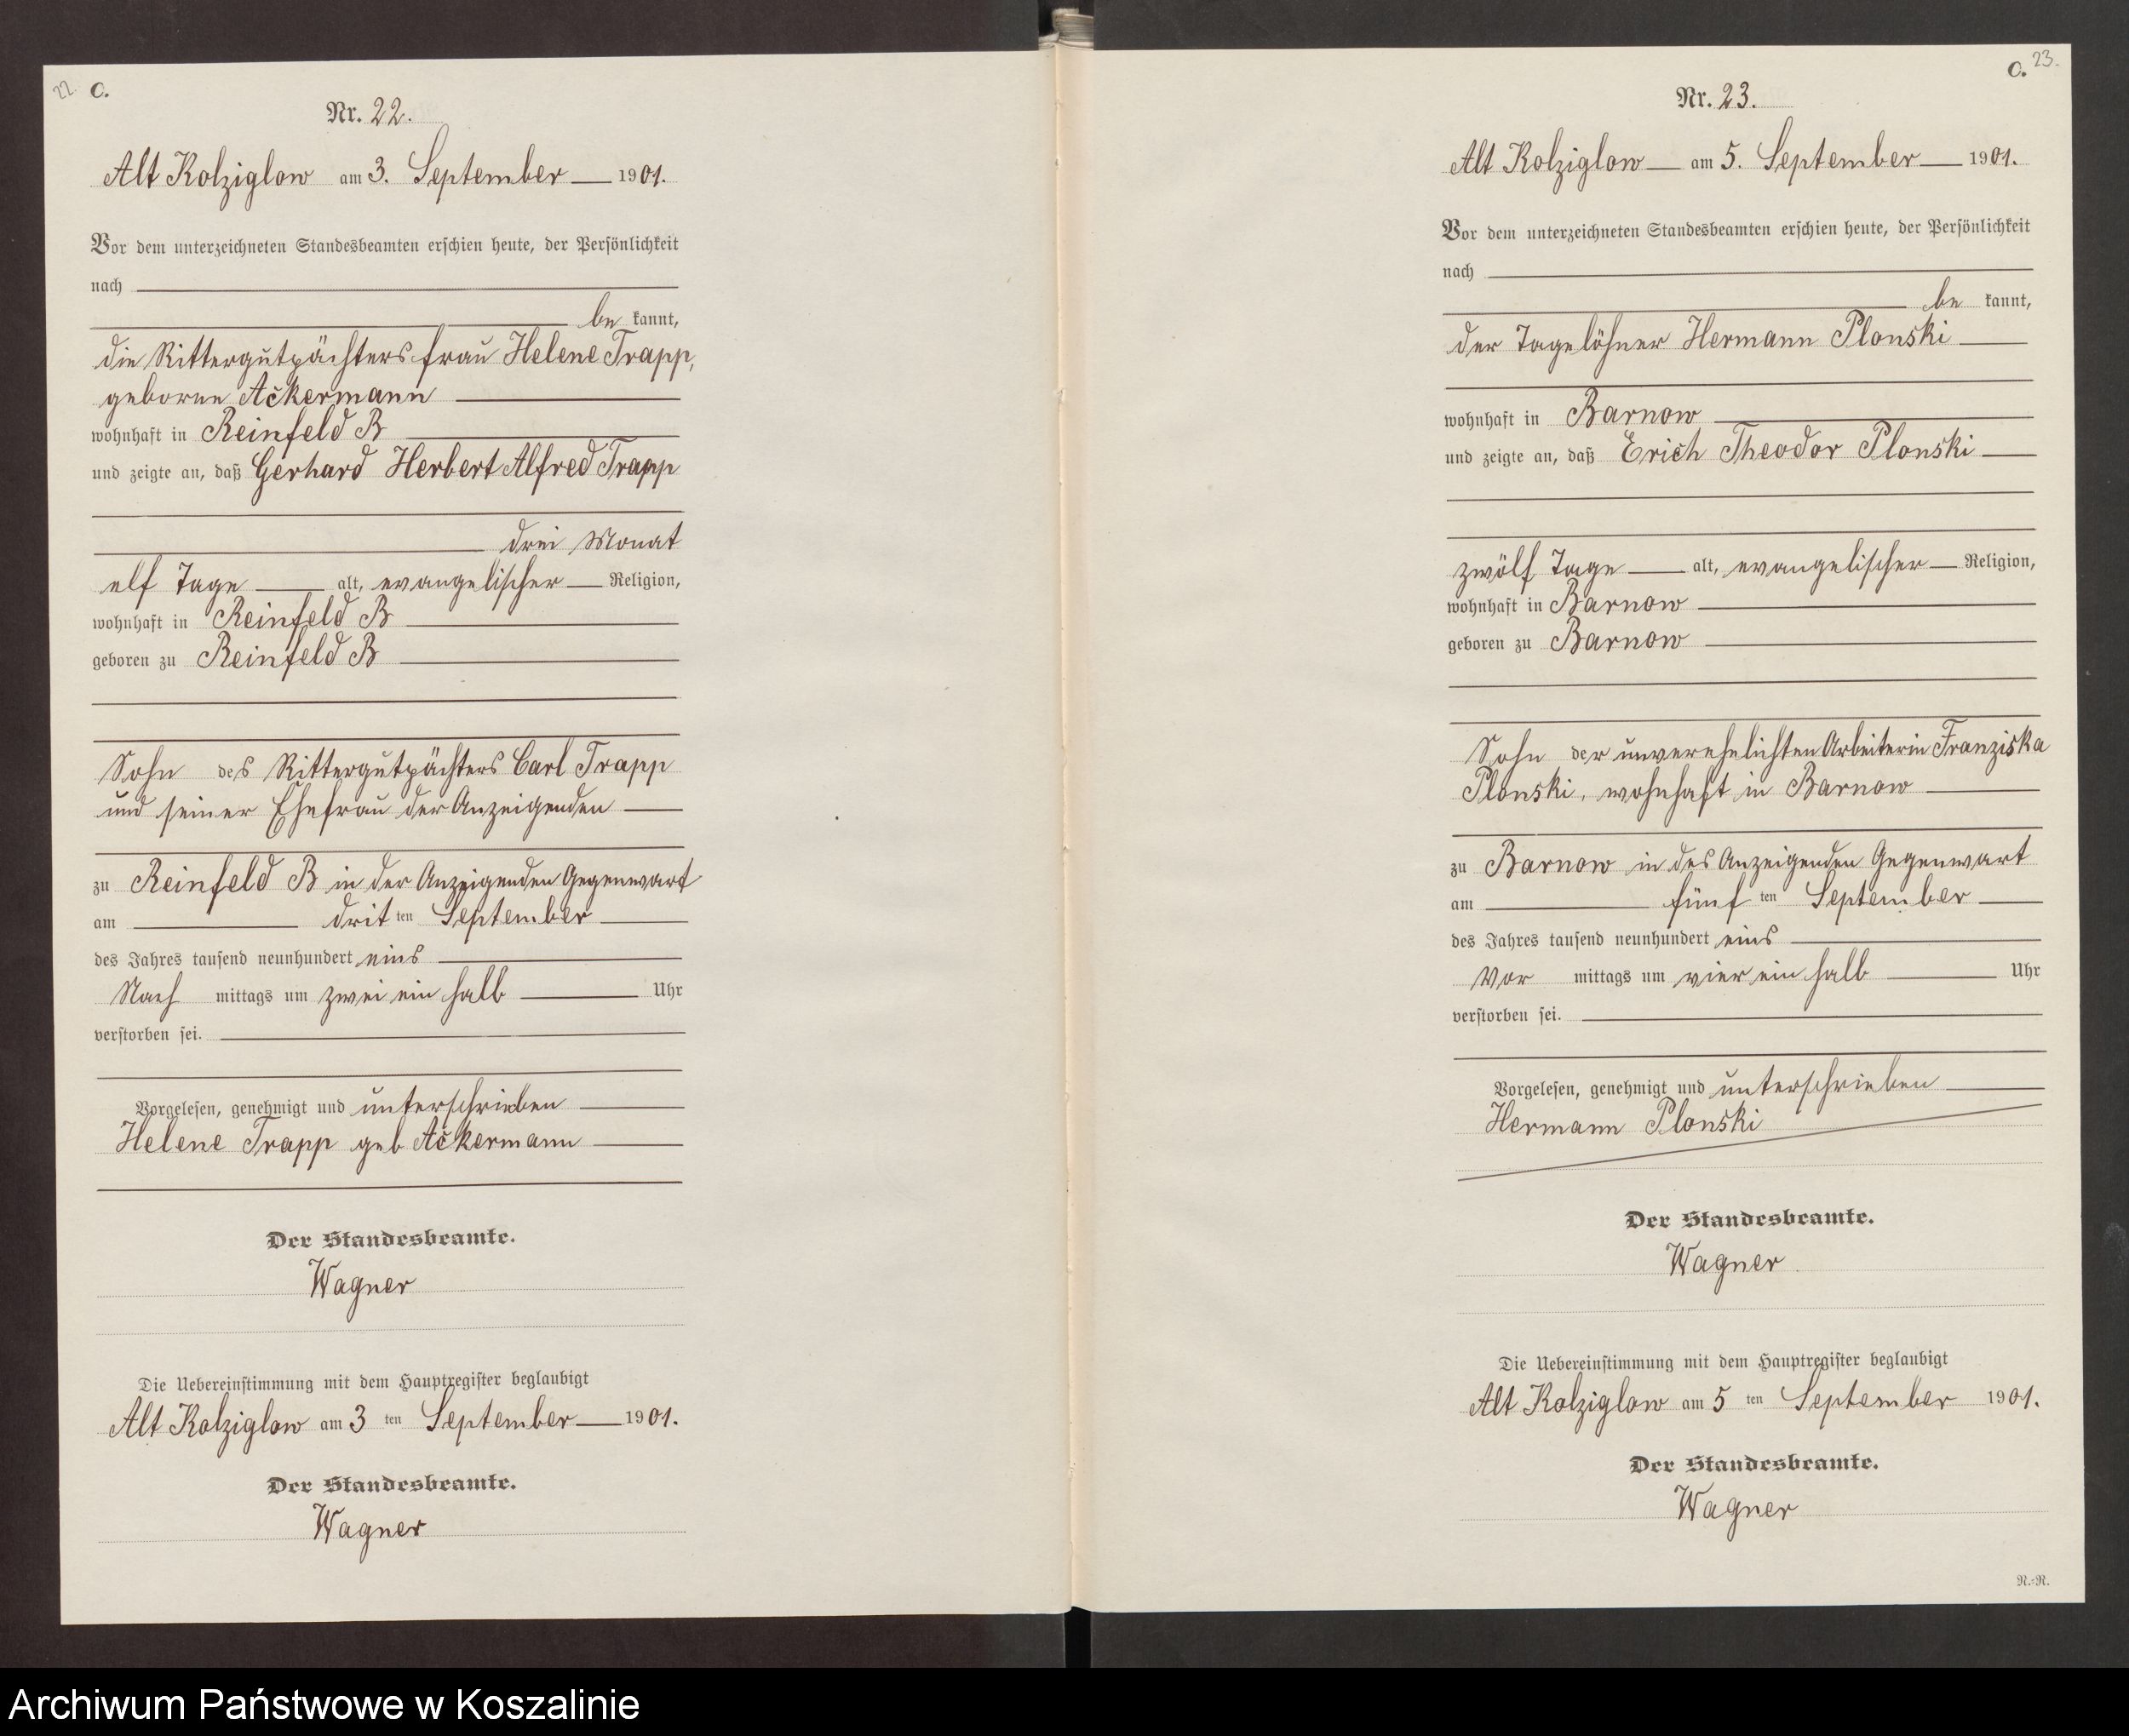 22
C.
Nr. 22.
Alt Kolziglow am 3. September 1901.
Vor dem unterzeichneten Standesbeamten erschien heute, der Persönlichkeit
nach
be kannt,
die Rittergutpächtersfrau Helene Trapp,
geborne Ackermann
wohnhaft in Reinfeld B
und zeigte an, daß Gerhard Herbert Alfred Trapp
drei Monat
elf Tage alt, evangelischer Religion,
wohnhaft in Reinfeld B
geboren zu Reinfeld B
Sohn des Rittergutpächters Carl Trapp
und seiner Ehefrau der Anzeigenden
zu Reinfeld B in der Anzeigenden Gegenwart
am dritten September
des Jahres tausend neunhundert eins
Nach mittags um zwei ein halb Uhr
verstorben sei.
Vorgelesen, genehmigt und unterschrieben
Helene Trapp geb Ackermann
Der Standesbeamte.
Wagner
Die Uebereinstimmung mit dem Hauptregister beglaubigt
Alt Kolziglow am 3 ten September 1901.
Der Standesbeamte.
Wagner
C. 23.
Nr. 23.
Alt Kolziglow am 5. September 1901.
Vor dem unterzeichneten Standesbeamten erschien heute, der Persönlichkeit
nach
be kannt,
der Tagelöhner Hermann Plonski
wohnhaft in Barnow
und zeigte an, daß Erich Theodor Plonski
zwölf Tage alt, evangelischer Religion,
wohnhaft in Barnow
geboren zu Barnow
Sohn der unverehelichten Arbeiterin Franziska
Plonski, wohnhaft in Barnow
zu Barnow in des Anzeigenden Gegenwart
am fünften September
des Jahres tausend neunhundert eins
Vor mittags um vier ein halb Uhr
verstorben sei.
Vorgelesen, genehmigt und unterschrieben
Hermann Plonski
Der Standesbeamte.
Wagner
Die Uebereinstimmung mit dem Hauptregister beglaubigt
Alt Kolziglow am 5 ten September 1901.
Der Standesbeamte.
Wagner
N.=N.
Archiwum Państwowe w Koszalinie